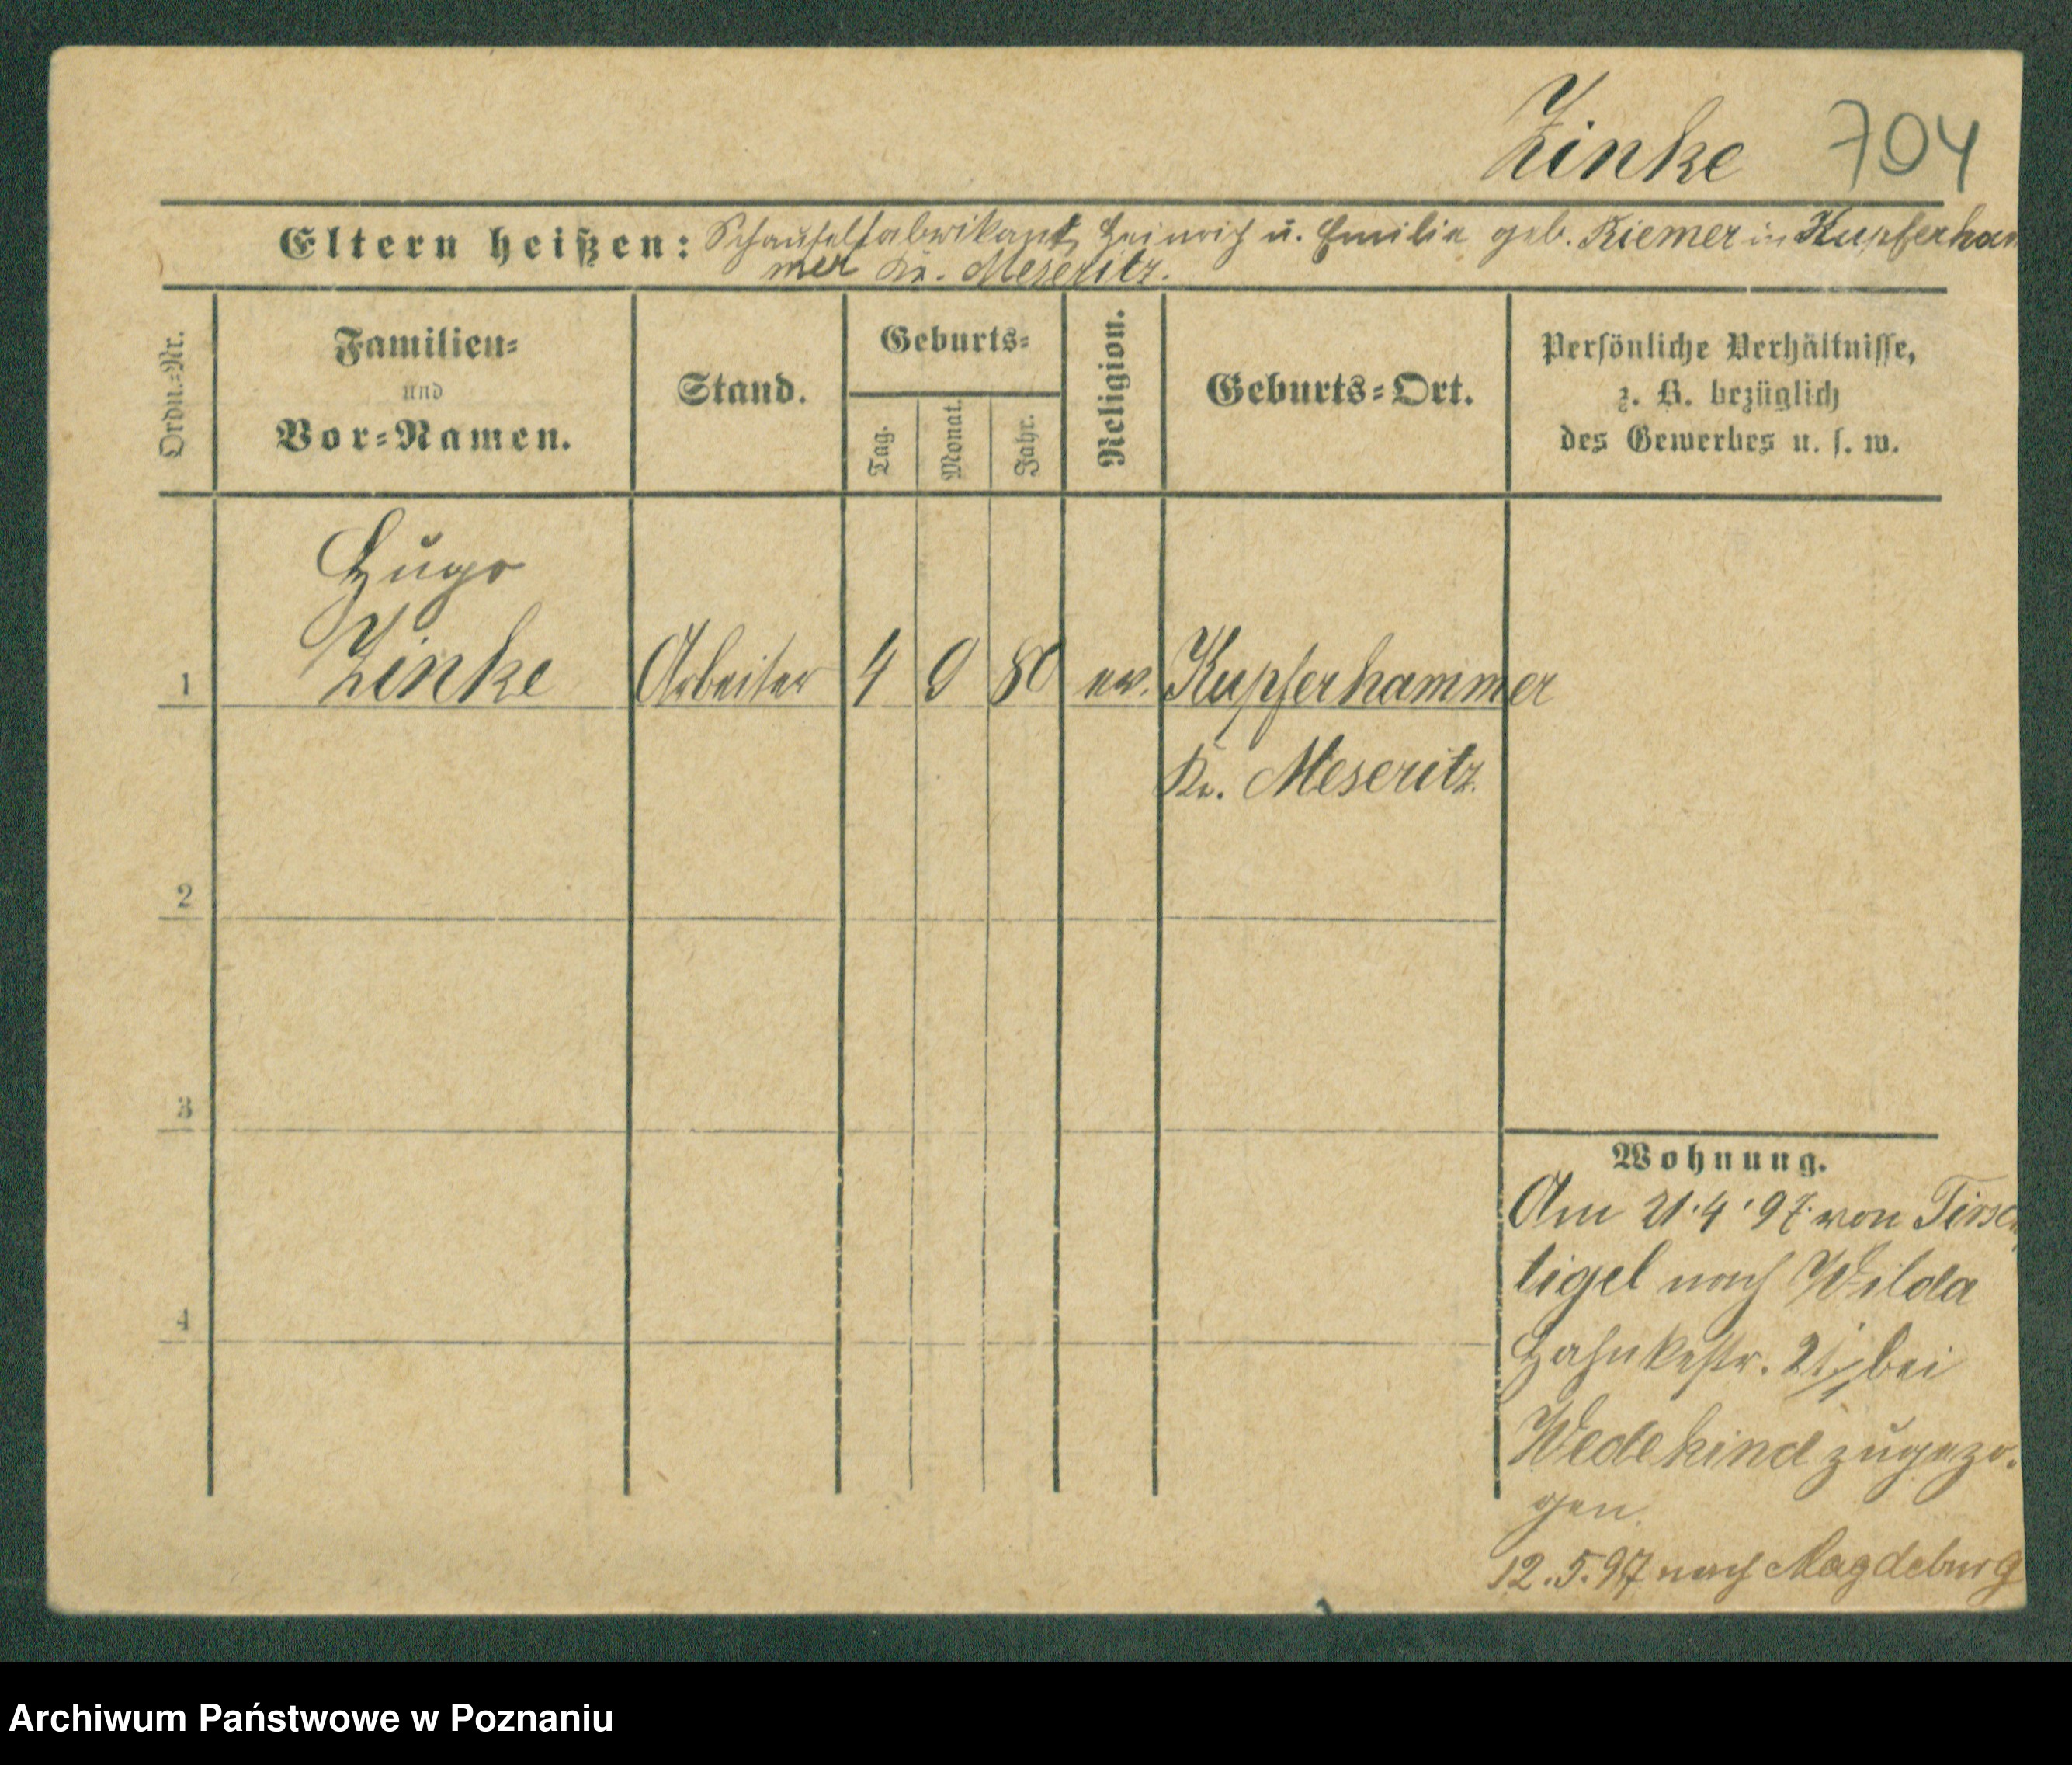 Zinke 704
Eltern heißen: Schaufelfabrikant Heinrich u. Emilie geb. Riemer in Kupferham
mer Kr. Meseritz.
Ordn.=Nr.
Familien=
und
Vor=Namen.
Stand.
Geburts=
Tag.
Monat.
Jahr.
Religion.
Geburts=Ort.
Persönliche Verhältnisse,
z. B. bezüglich
des Gewerbes u. s. w.
Hugo
1 Zinke Arbeiter 4 9 80 ev. Kupferhammer
Kr. Meseritz.
2
3
4
Wohnung.
Am 21.4.97. von Tirsch
tigel nach Wilda
bei
Wedekind zugezo-
gen.
12.5.97 nach Magdeburg
Archiwum Państwowe w Poznaniu